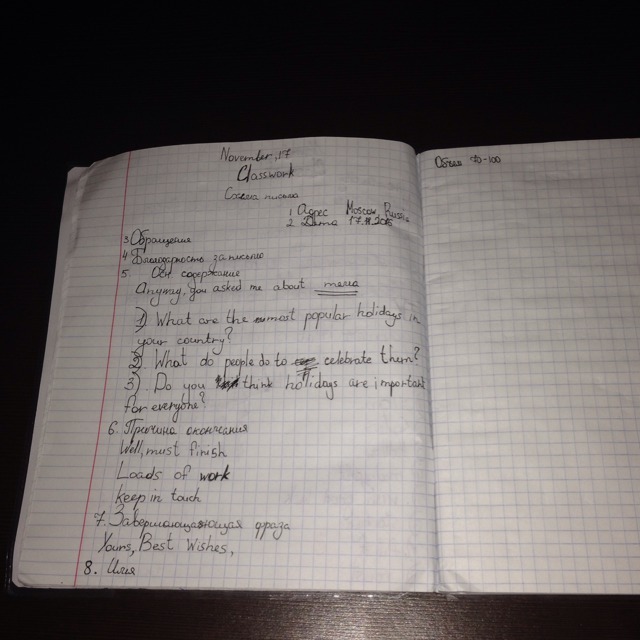 November, 17
Classwork
Схема письма
1 Адрес Moscow, Russia
2 Дата 17.11.2015
3 Обращение
4 Благодарность за письмо
5. Осн содержание
Anyway, you asked me about тема
1) What are the most popular holidays in
your country?
2) What do people do to celebrate them?
3) Do you think holidays are important
for everyone?
6. Причина окончания
Well, must finish
Loads of work
keep in touch
7. Завершающая фраза
Yours, Best Wishes,
8. Имя
Объем 70-100